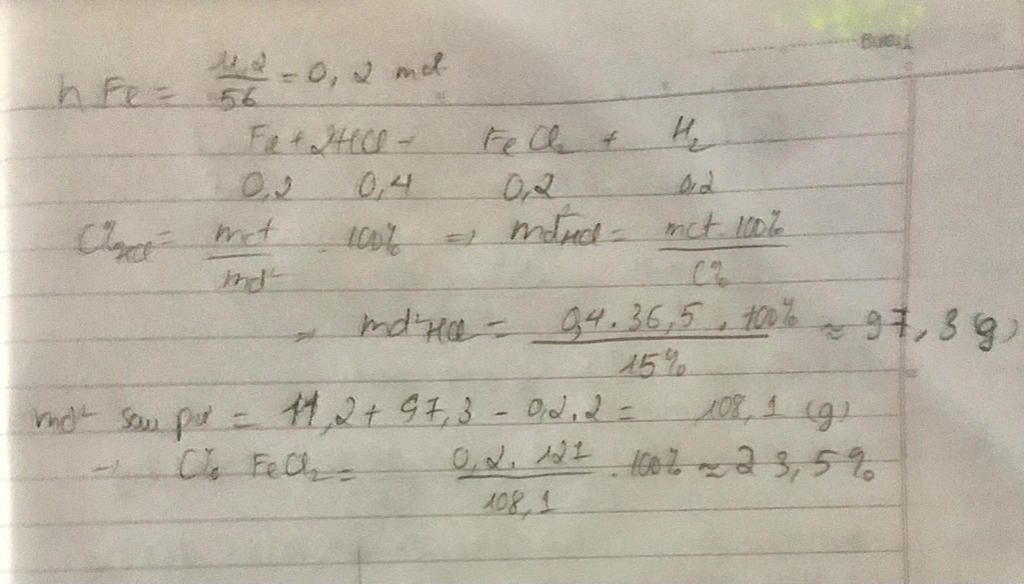 n Fe = 11,2/56 = 0,2 mol
Fe + 2HCl → FeCl₂ + H₂
0,2 0,4 0,2 0,2
C%HCl = mct/mdd . 100% => mddHCl = mct . 100%/C%
=> mddHCl = 0,4 . 36,5 . 100%/15% ≈ 97,3 (g)
mdd sau pư = 11,2 + 97,3 - 0,2 . 2 = 108,1 (g)
→ C% FeCl₂ = 0,2 . 127/108,1 . 100% ≈ 23,5%